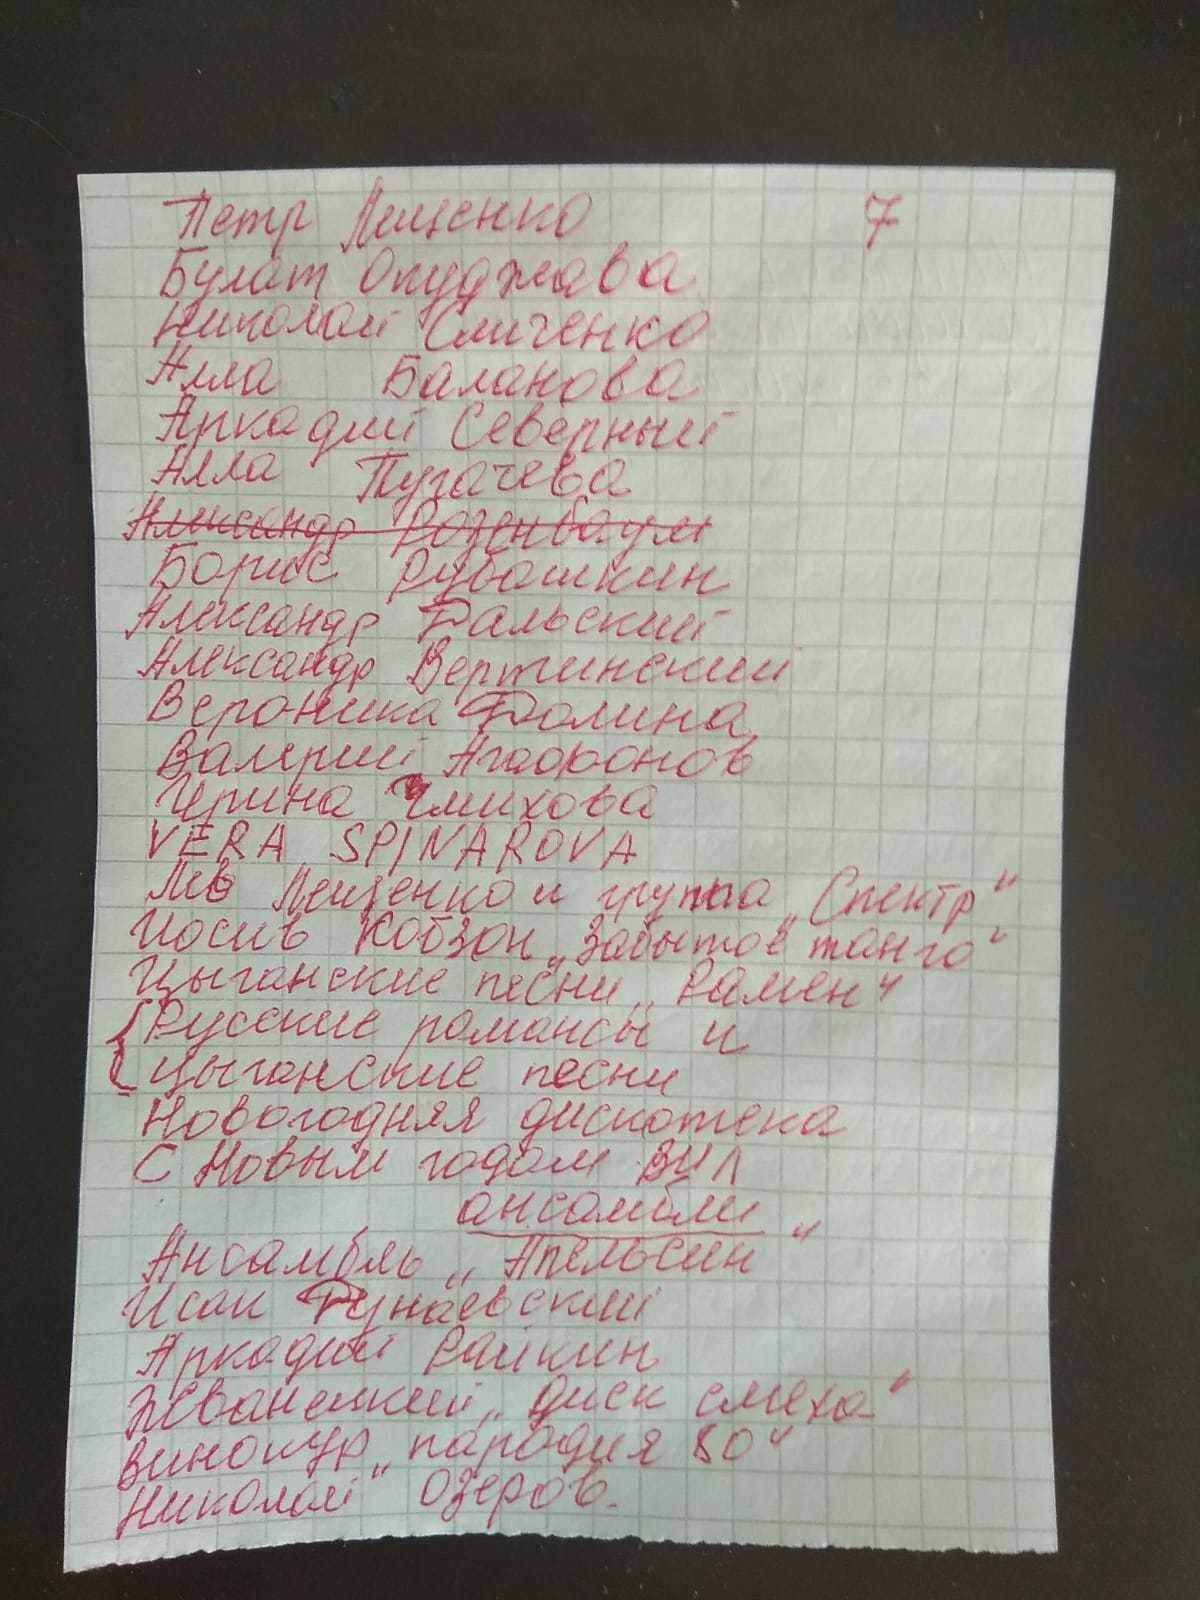 Петр Лещенко
7
Булат Окуджава
Николай Сличенко
Алла Баланова
Аркадий Северный
Алла Пугачева
Александр Розенбаум
Борис Рубашкин
Александр Дальский
Александр Вертинский
Вероника Долина
Валерий Агафонов
Ирина Емихова
VERA SPINAROVA
Лев Лещенко и группа „Спектр"
Иосив Кобзон „Забытое танго"
Цыганские песни „Рамен"
Русские романсы и
цыганские песни
Новогодняя дискотека
С Новым годом ВИА
ансамбли
Ансамбль „Апельсин"
Исак Дунаевский
Аркадий Райкин
Жванецкий „диск смеха"
Винокур „пародия 80"
Николай Озеров.